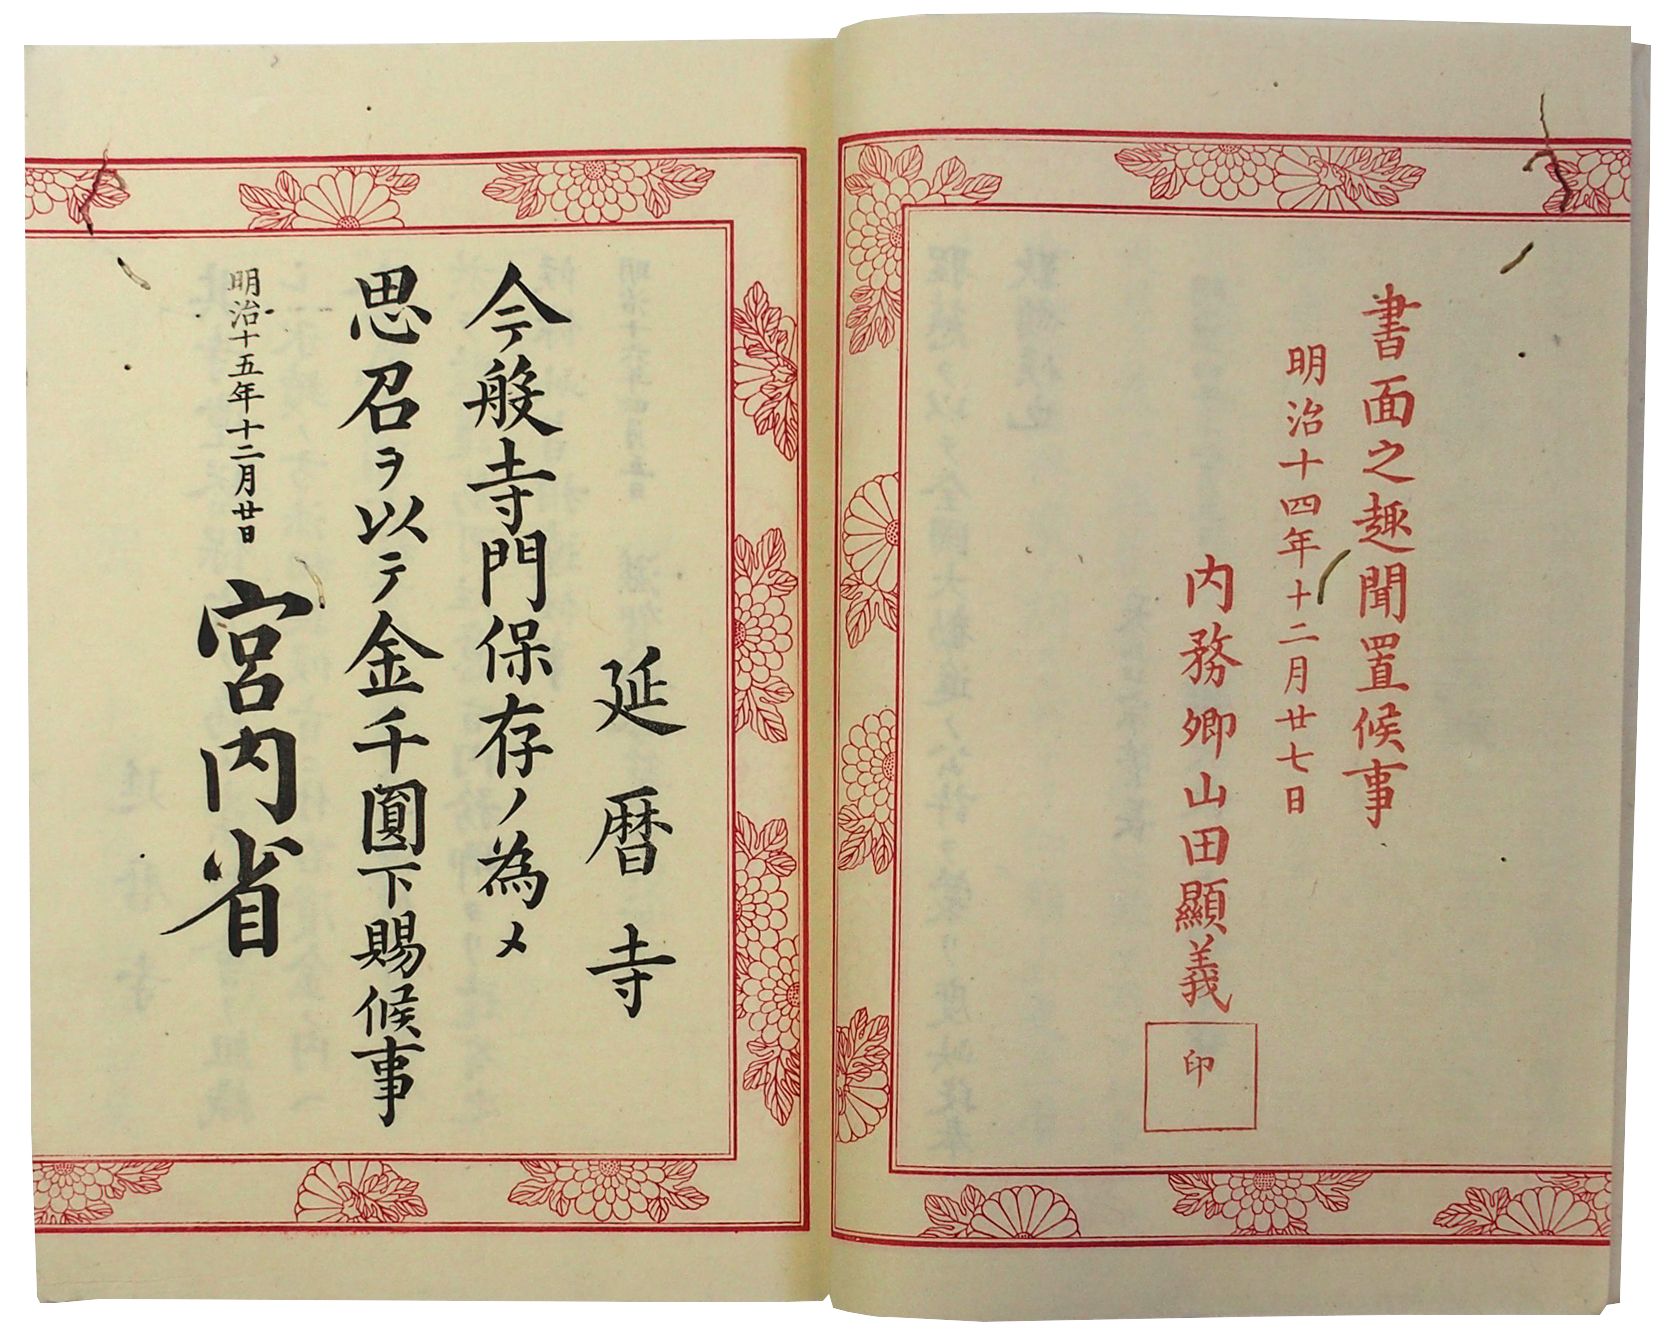 書面之趣聞置候事
明治十四年十二月廿七日
内務卿山田顯義
印
延暦寺
今般寺門保存ノ為メ
思召ヲ以テ金千圓下賜候事
明治十五年十二月廿日
宮内省